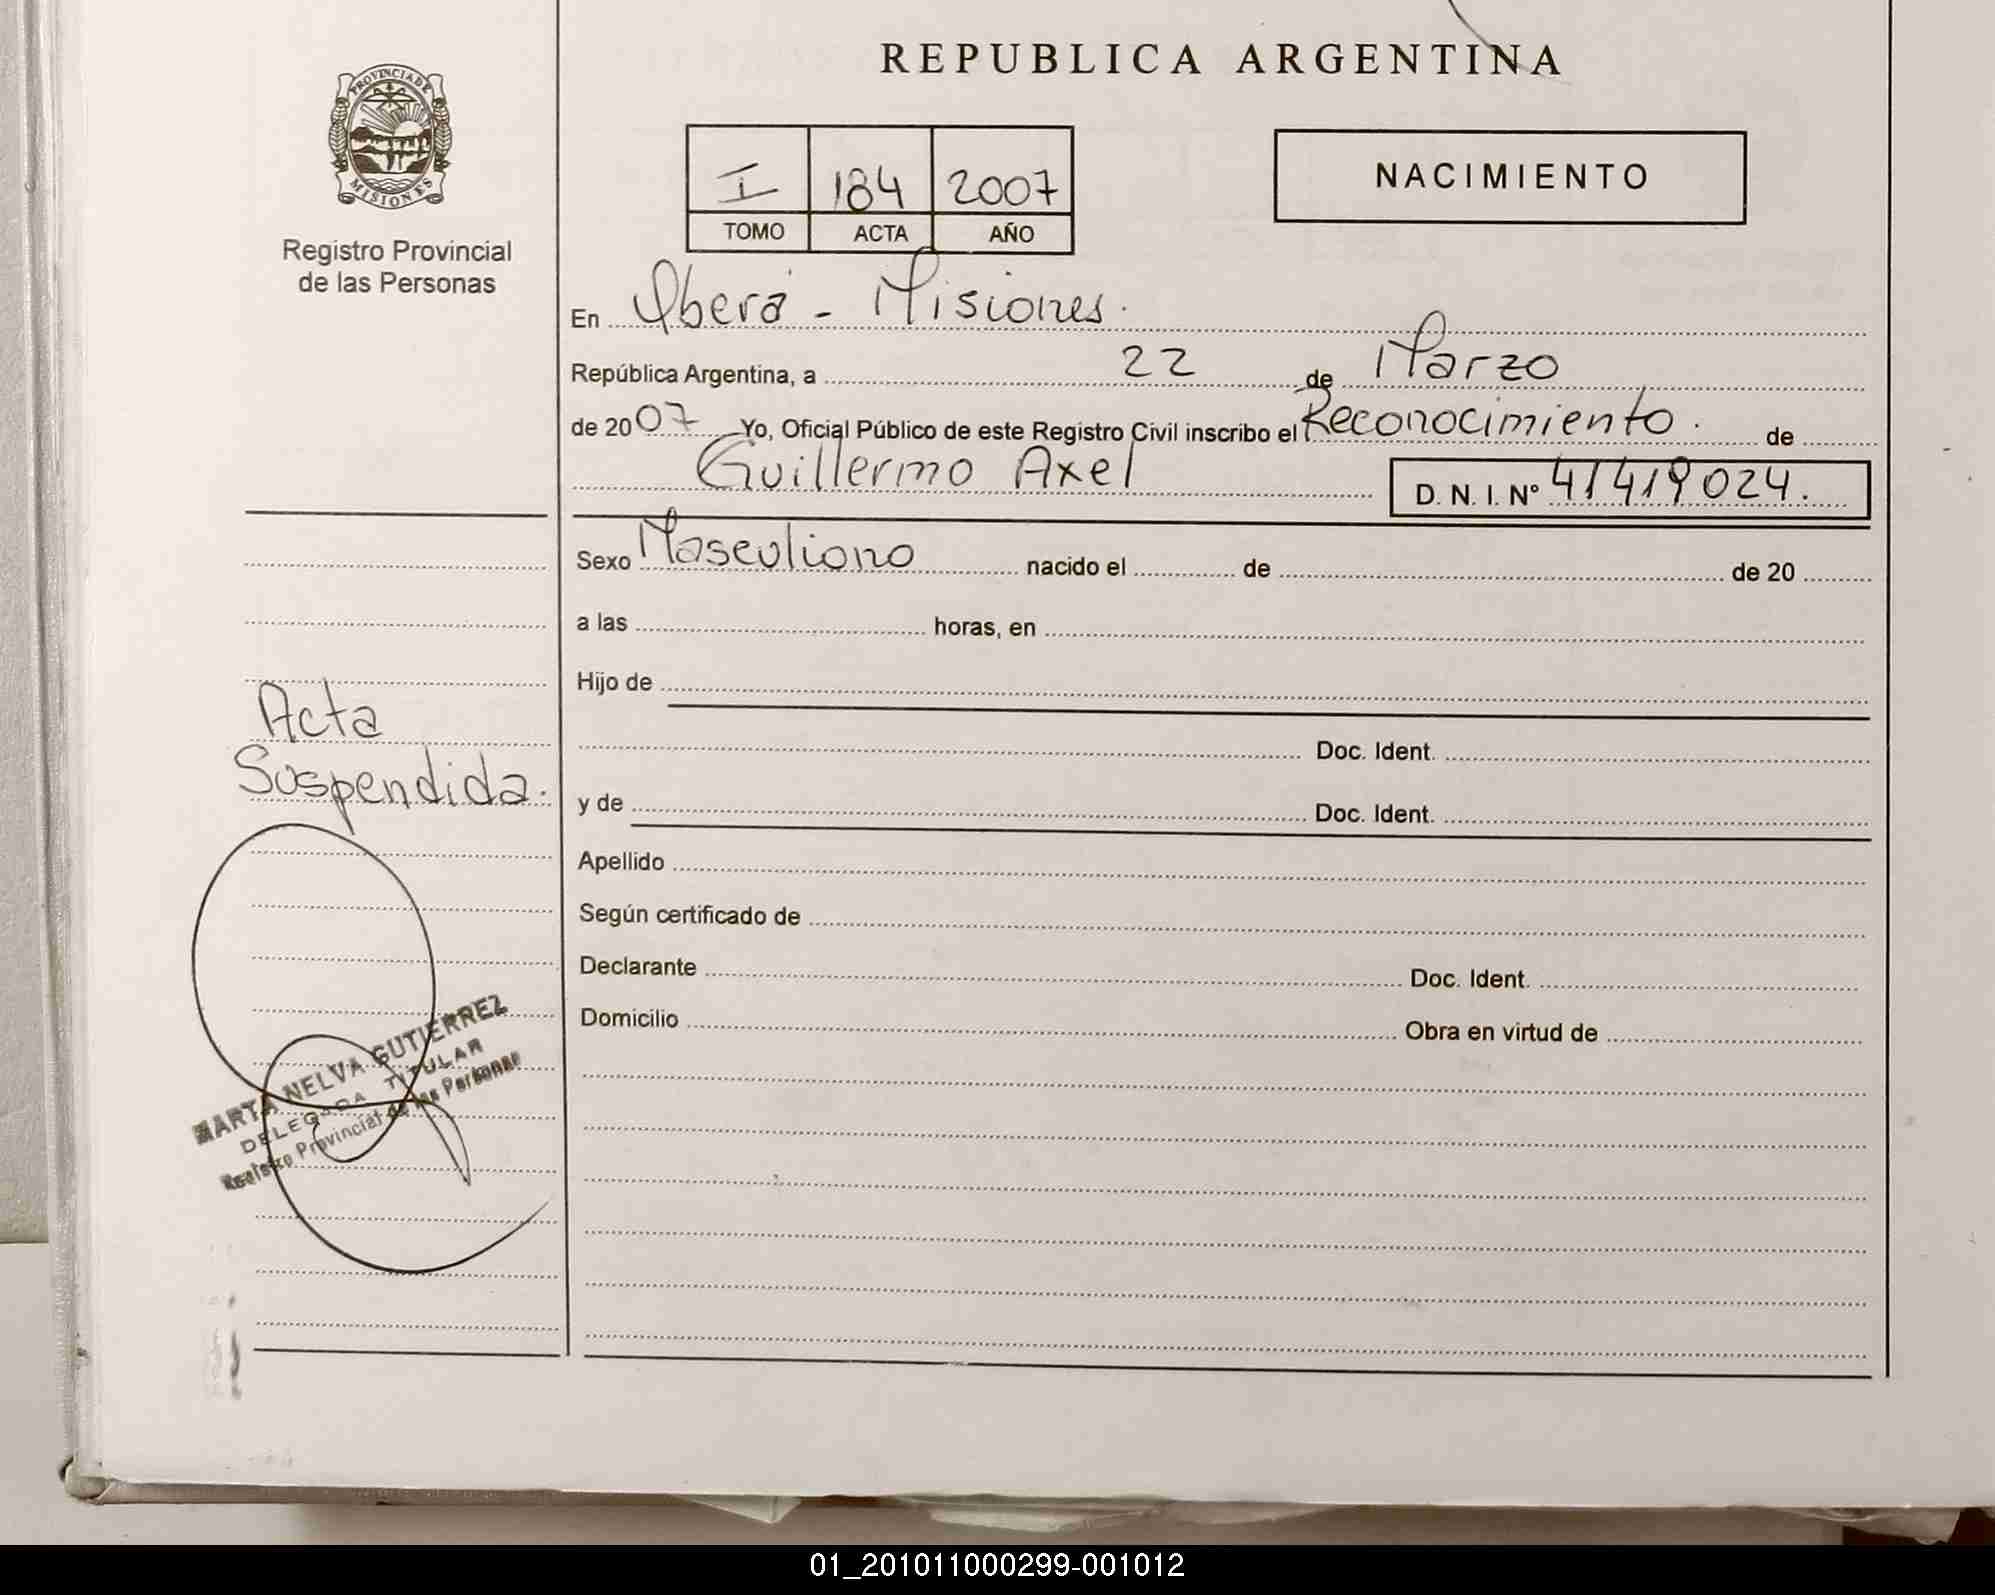 REPUBLICA ARGENTINA
PROVINCIA DE MISIONES
Registro Provincial
de las Personas
I 184 2007
TOMO ACTA AÑO
NACIMIENTO
En Oberá - Misiones.
República Argentina, a 22 de Marzo
de 2007 Yo, Oficial Público de este Registro Civil inscribo el Reconocimiento. de
Guillermo Axel D. N. I. Nº 41419024.
Sexo Masculiono nacido el de de 20
a las horas, en
Hijo de
Doc. Ident.
y de Doc. Ident.
Apellido
Según certificado de
Declarante Doc. Ident.
Domicilio Obra en virtud de
Acta
Suspendida.
MARTA NELVA GUTIERREZ
DELEGADA TITULAR
Registro Provincial de las Personas
01_201011000299-001012